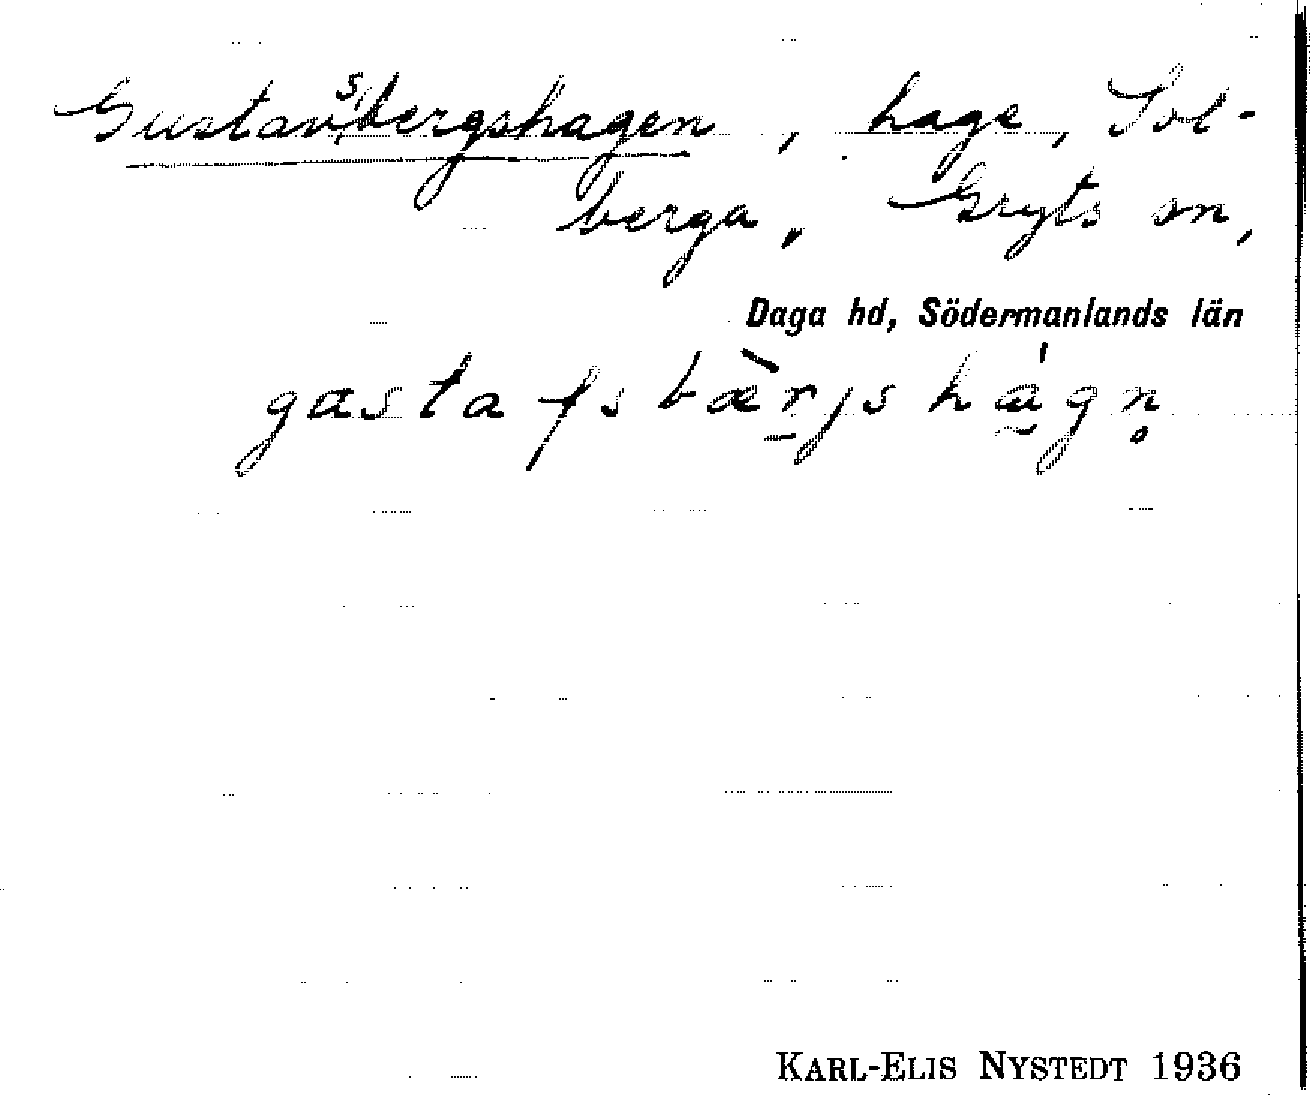 Gustavsbergshagen, hage, Sol-
berga, Gryts sn,
Daga hd, Södermanlands län
gastafsbæ̀rjshág̣n̥
KARL-ELIS NYSTEDT 1936